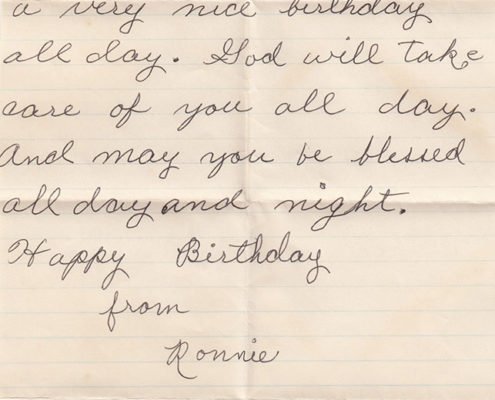 a very nice birthday
all day. God will take
care of you all day.
And may you be blessed
all day and night.
Happy Birthday
from
Ronnie